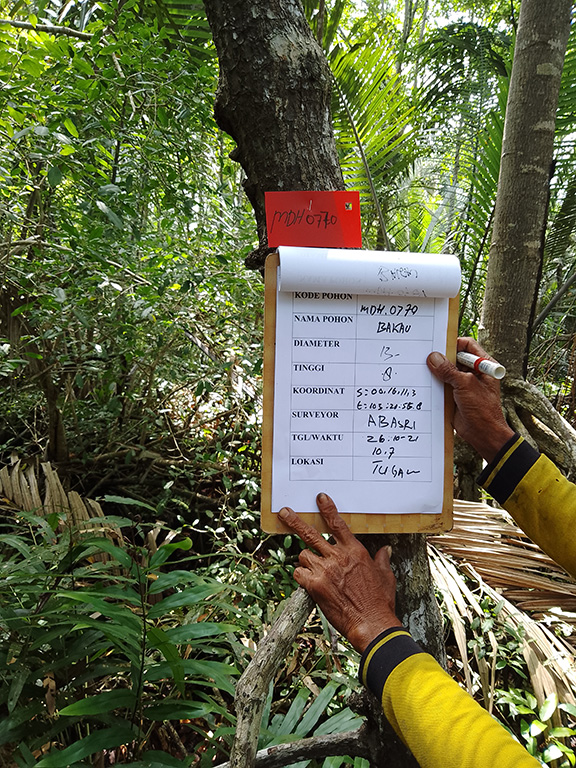 MDH0770
KODE POHON MDH.0770
NAMA POHON BAKAU
DIAMETER 13-
TINGGI 8-
KOORDINAT S=00.16.11.3
E=103.21.55.8
SURVEYOR ABASRI
TGL/WAKTU 26.10-21
10.7
LOKASI